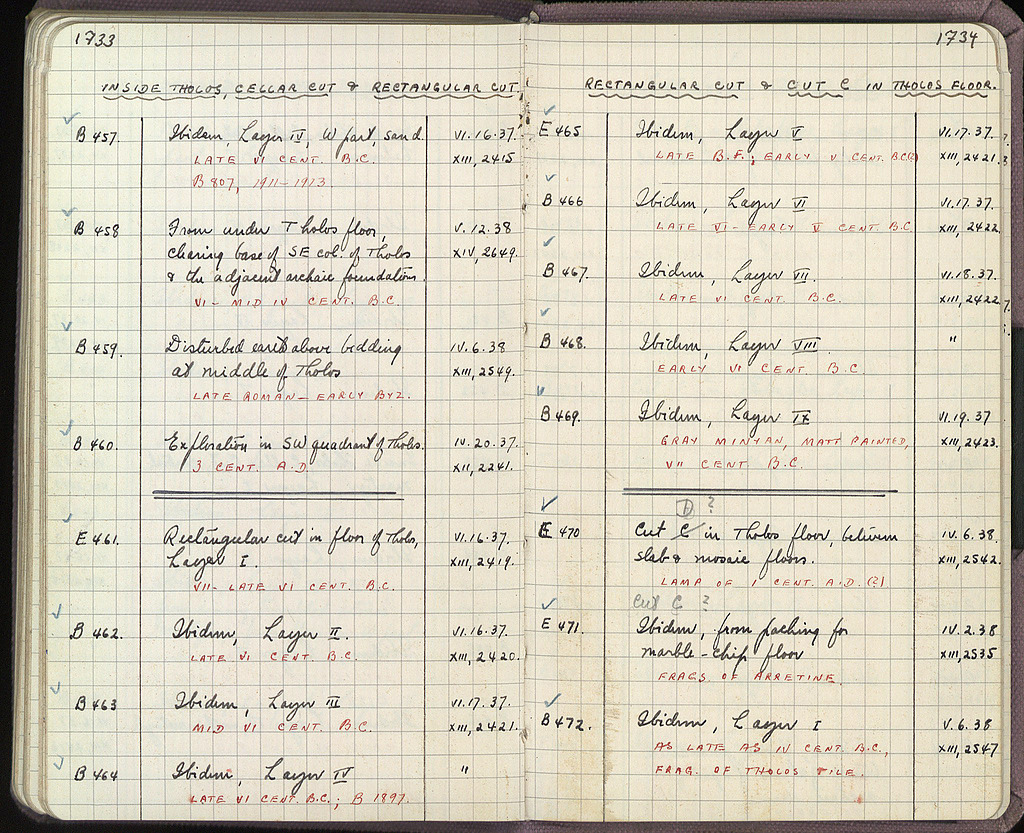 1733
INSIDE THOLOS, CELLAR CUT & RECTANGULAR CUT
B 457. Ibidem, Layer IV, W part, sand. VI.16.37.
LATE VI CENT. B.C. XIII, 2415
B 807, 1911-1913.
B 458 From under Tholos floor, V.12.38
clearing base of SE col. of Tholos XIV, 2649.
& the adjacent archaic foundations.
VI - MID IV CENT. B.C.
B 459. Disturbed earth above bedding IV.6.38
at middle of Tholos XIII, 2549.
LATE ROMAN - EARLY BYZ.
B 460. Exploration in SW quadrant of Tholos. IV.20.37.
3 CENT. A.D. XII, 2241.
E 461. Rectangular cut in floor of Tholos, VI.16.37.
Layer I. XIII, 2419.
VII - LATE VI CENT. B.C.
B 462. Ibidem, Layer II. VI.16.37.
LATE VI CENT. B.C. XIII, 2420.
B 463 Ibidem, Layer III VI.17.37.
MID VI CENT. B.C. XIII, 2421.
B 464 Ibidem, Layer IV "
LATE VI CENT. B.C.; B 1897.
1734
RECTANGULAR CUT & CUT C IN THOLOS FLOOR.
E 465 Ibidem, Layer V VI.17.37.
LATE B.F.; EARLY V CENT. B.C.(?) XIII, 2421.
B 466 Ibidem, Layer VI VI.17.37.
LATE VI - EARLY V CENT. B.C. XIII, 2422.
B 467. Ibidem, Layer VII. VI.18.37.
LATE VI CENT. B.C. XIII, 2422
B 468. Ibidem, Layer VIII "
EARLY VI CENT B.C
B 469. Ibidem, Layer IX VI.19.37
GRAY MINYAN, MATT PAINTED, XIII, 2423.
VII CENT. B.C.
D ?
E 470 Cut C in Tholos floor, between IV.6.38.
slab & mosaic floors. XIII, 2542.
LAMP OF I CENT. A.D. (?)
Cut C ?
E 471. Ibidem, from packing for IV.2.38
marble-chip floor XIII, 2535
FRAGS OF ARRETINE.
B 472. Ibidem, Layer I V.6.38
AS LATE AS IV CENT. B.C., XIII, 2547
FRAG. OF THOLOS TILE.